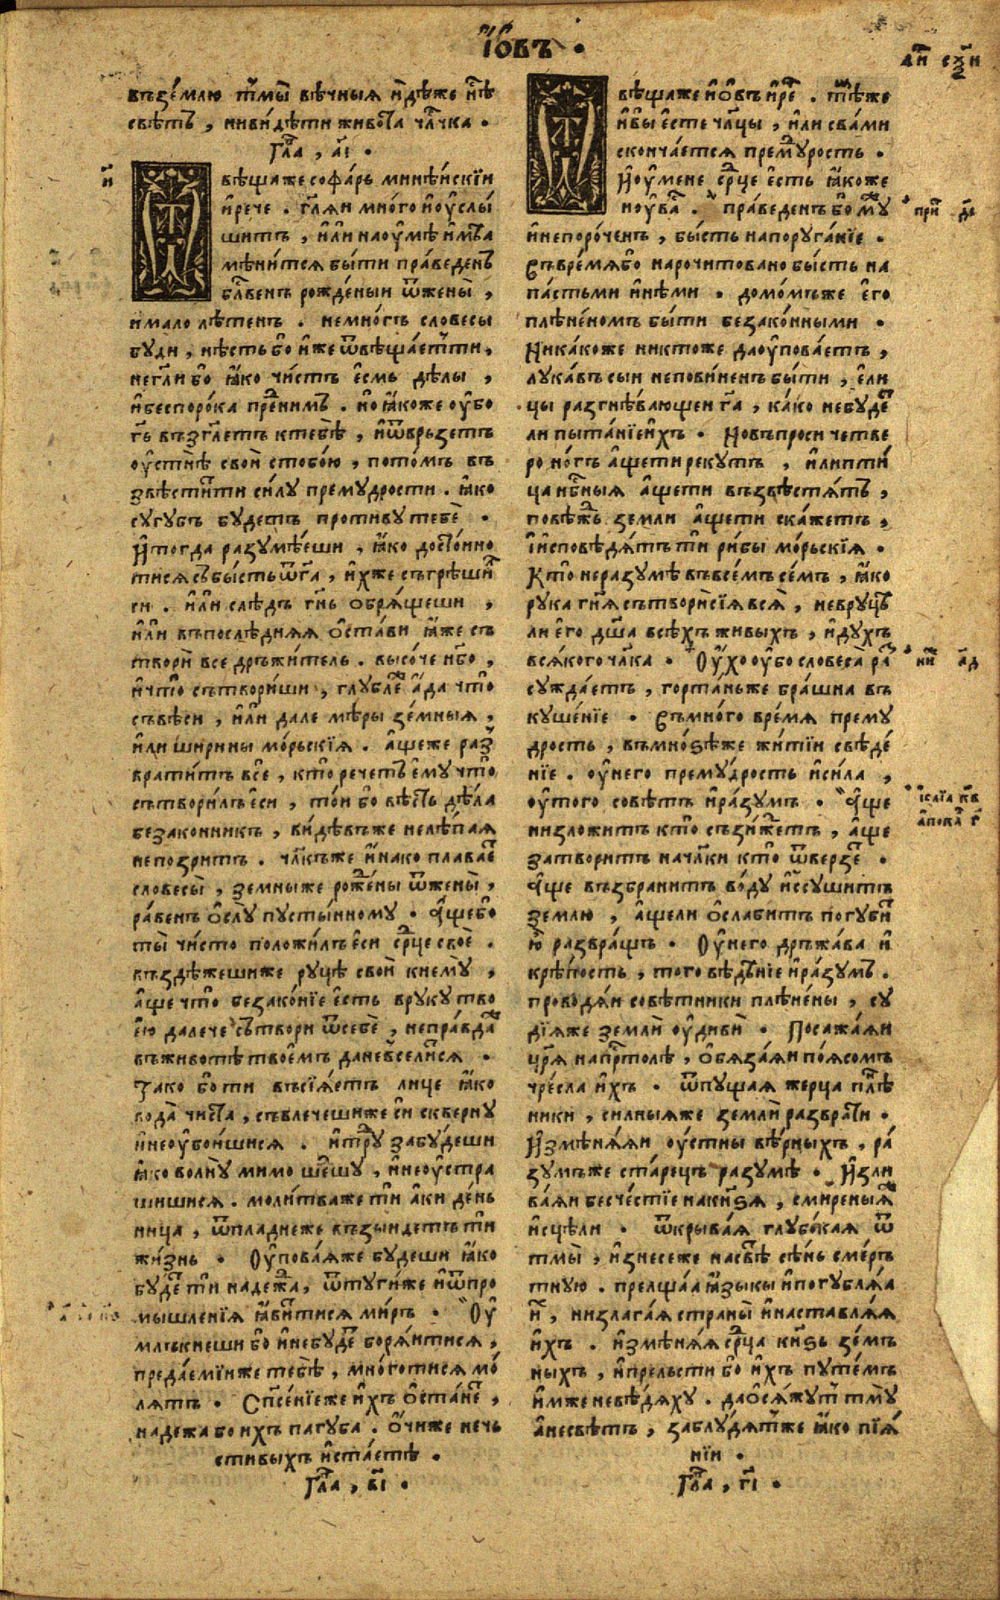 І҆́овъ •
въ зе́млю тмы̀ вѣ́чныя и҆дѣ́же нѣ́
свѣтъ , ни ви́дѣти живота̀ чл҃чка •
Гла̀ , а҃і •
вѣща́же софа́рь мине́йскїи
и҆рече . гл҃яи мно́го и҆оу҆слы́
шитъ , и҆лѝ наоу҆мѣ̀ и҆мъ̀а
мѣни́тся бы́ти пра́веденъ
бл҃венъ рожде́ныи ѿжены̀ ,
и мало лѣтенъ . не мно́гъ словесы
буди , нѣсть бо и҆́же ѿвѣщае́тъти ,
не гл҃и бо ꙗ҆́ко чи́стъ є҆́смь дѣ́лы ,
и҆беспоро́ка пре́нимъ . но ꙗ҆́коже оу҆́бо
гь҃ възгл҃етъ ктебѣ̀ , и҆ѿврьзетъ
оу҆стнѣ̀ своѝ стобо́ю , пото́мъ въ
звѣсти́тти си́лу премудрости . ꙗ҆́ко
сугубъ будетъ противу тебѐ •
И҆ тогда разумѣ́еши , ꙗ҆́ко досто́ино
тися събы́сть ѿгⷭ҇а , и҆́хже съгрѣши́лъ
еси . и҆лѝ слѣдъ гн҃ь обря́щеши ,
и҆лѝ въ послѣдняя о҆ста́ви ꙗ҆́же съ
творѝ все дръжи́тель . высо́че нб҃о ,
и҆что̀ сътвори́ши , глубле́ а҆́да что̀
съвѣ́си , и҆лѝ дале мѣры зе́мныя ,
и҆ли ширины мо́рьскїя . а҆́щеже раз̾
врати́тъ всѐ , кто̀ рече́тъ є҆му̀ что̀
сътвори́лъ є҆си , то́и бо вѣ́сть дѣ́ла
безако́нникъ , ви́дѣвъже нелѣ́пая
не позри́тъ . чл҃къже и҆́нако плавае́
словесы̀ , земныже роже́ны ѿжены̀ ,
ра́венъ о҆слу пусты́нному • а҆́щебо̀
ты̀ чи́сто положи́лъ є҆си ср҃це своѐ .
въздѣ́жешиже руцѣ̀ своѝ кнему̀ ,
а҆́ще что̀ безако́нїе є҆́сть вруку тво
є҆́ю далече сътвори ѿсебѐ , непра́вда
въ животѣ̀ твое́мъ да не вселѝся •
Тако бо ти въсїя́етъ лице ꙗ҆́ко
вода̀ чиста , съвлечешиже си́ скверну
и҆неоу҆бои́шися . и҆тру́ забу́деши
ꙗ҆́ко волну̀ мимо шѐшу , и҆неоу҆стра
шишися . моли́тваже тѝ а҆́ки де́нь
ница , ѿпладнеже възы́идетъ тѝ
жи́знь • Оу҆пова́яже бу́деши ꙗ҆́ко
бу́де тѝ наде́жа , ѿтуги́же и҆ѿпро
мышленїя ꙗ҆ви́тися ми́ръ • Оу҆
млъкнеши бо и҆небуде́ боря́итися ,
преда́емїиже тебѣ̀ , мно́готися мо́
лятъ • Спⷭ҇е́нїеже и҆́хъ о҆ста́не ,
наде́жа бо и҆хъ па́губа . о҆́чиже нечь
стивыхъ и҆ста́етѣ •
Гла̀ , в҃і •
вѣщаже и҆́овъ и҆ре . то́же
и҆ вы̀ є҆сте чл҃цы , и҆́ли сва́ми
сконча́ется прему́рость •
И҆ оу҆мене ср҃це є҆сть ꙗ҆́коже
и оу҆ва̀ . пра́веденъ бо му́
и҆непоро́ченъ , бы́сть напоруга́нїе •
Съ вре́мя бо нарочитовано бы́сть на
па́стьми и҆нѣ́ми • домо́мъже є҆го
плѣнено́мъ бы́ти безако́нными •
Ника́коже никтоже да оу҆пова́етъ ,
лука́въ сыи непови́ненъ бы́ти , є҆ли
цы разгнѣ́вающеи гⷭ҇а , ка́ко небуде́
ли пыта́нїе и҆́хъ • Но въпроси четве
роно́гъ а҆́щети рекутъ , и҆ли пти́
ца нб҃ныя а҆́щети възвѣстя́тъ ,
повѣ́жь земли а҆́щети ска́жетъ ,
И҆ исповѣ́дятъ тѝ ри́бы мо́рьскїя •
Кто̀ неразумѣ̀ въвсе́мъ се́мъ , ꙗ҆́ко
рука гн҃я сътворѝ сїя вся̀ , невруцѣ̀
ли є҆го дш҃а всѣ́хъ живы́хъ , и҆духъ
вся́кого чл҃ка • Оу҆́хо оу҆бо словеса̀ ра
сужда́етъ , горта́ньже бра́шна въ
куше́нїе • Съ мно́го вре́мя прему
дрость , въмно́зѣже житїи свѣде́
нїе . оу҆него прему́дрость и҆си́ла ,
оу҆того совѣ́тъ и҆ра́зумъ • а҆́ще
низложи́тъ кто̀ съзи́жетъ , а҆́ще
затвори́тъ начл҃ки кто̀ ѿве́рзе •
а҆́ще възбрани́тъ во́ду и҆ссушитъ
землю , а҆́щели о҆слаби́тъ погуби́
ю҆̀ развра́щь • Оу҆него дръжа́ва и҆
крѣ́пость , того вѣ́дѣнїе и҆ра́зумъ .
проводя́и совѣтники плѣнены , су
дїяже землѝ оу҆дивѝ • Посажа́яи
цр҃я напрⷭ҇толѣ , о҆бяза́яи по́ясомъ
чре́сла и҆́хъ • ѿпущая жерца плѣ
ники , силныяже землѝ разврати •
И҆змѣня́яи оу҆стны вѣ́рныхъ , ра́
зумъже ста́рецъ разумѣ̀ • И҆зли
ва́яи бесче́стїе накн҃ѕя , смире́ныя
и҆сцѣли • ѿкрыва́я глубо́кая ѿ
тмы̀ , и҆знесеже насвѣ̀ сѣ́нь сме́рть
тную . прелща́а ꙗ҆зы́ки и҆погубля́а
и҆́х , низлага́я страны̀ и҆наставля́я
и҆́хъ . и҆змѣня́я ср҃ца кн҃ѕь зе́мъ
ныхъ , и҆прельсти бо и҆́хъ путе́мъ
и҆мже невѣ́дяху . да о҆ся́жутъ тму
а҆ несвѣ́тъ , заблу́дятже ꙗ҆́ко пїя́
нїи •
Гла̀ , г҃і •